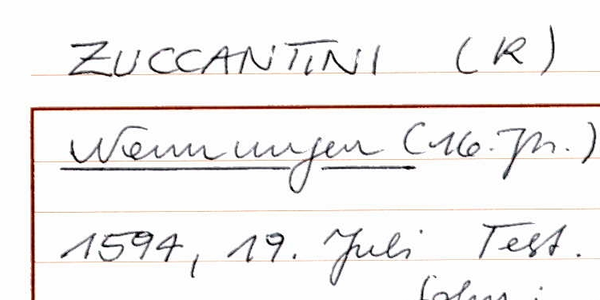 ZUCCANTINI (R)
Nennungen (16. Jh.)
1594, 19. Juli Test.